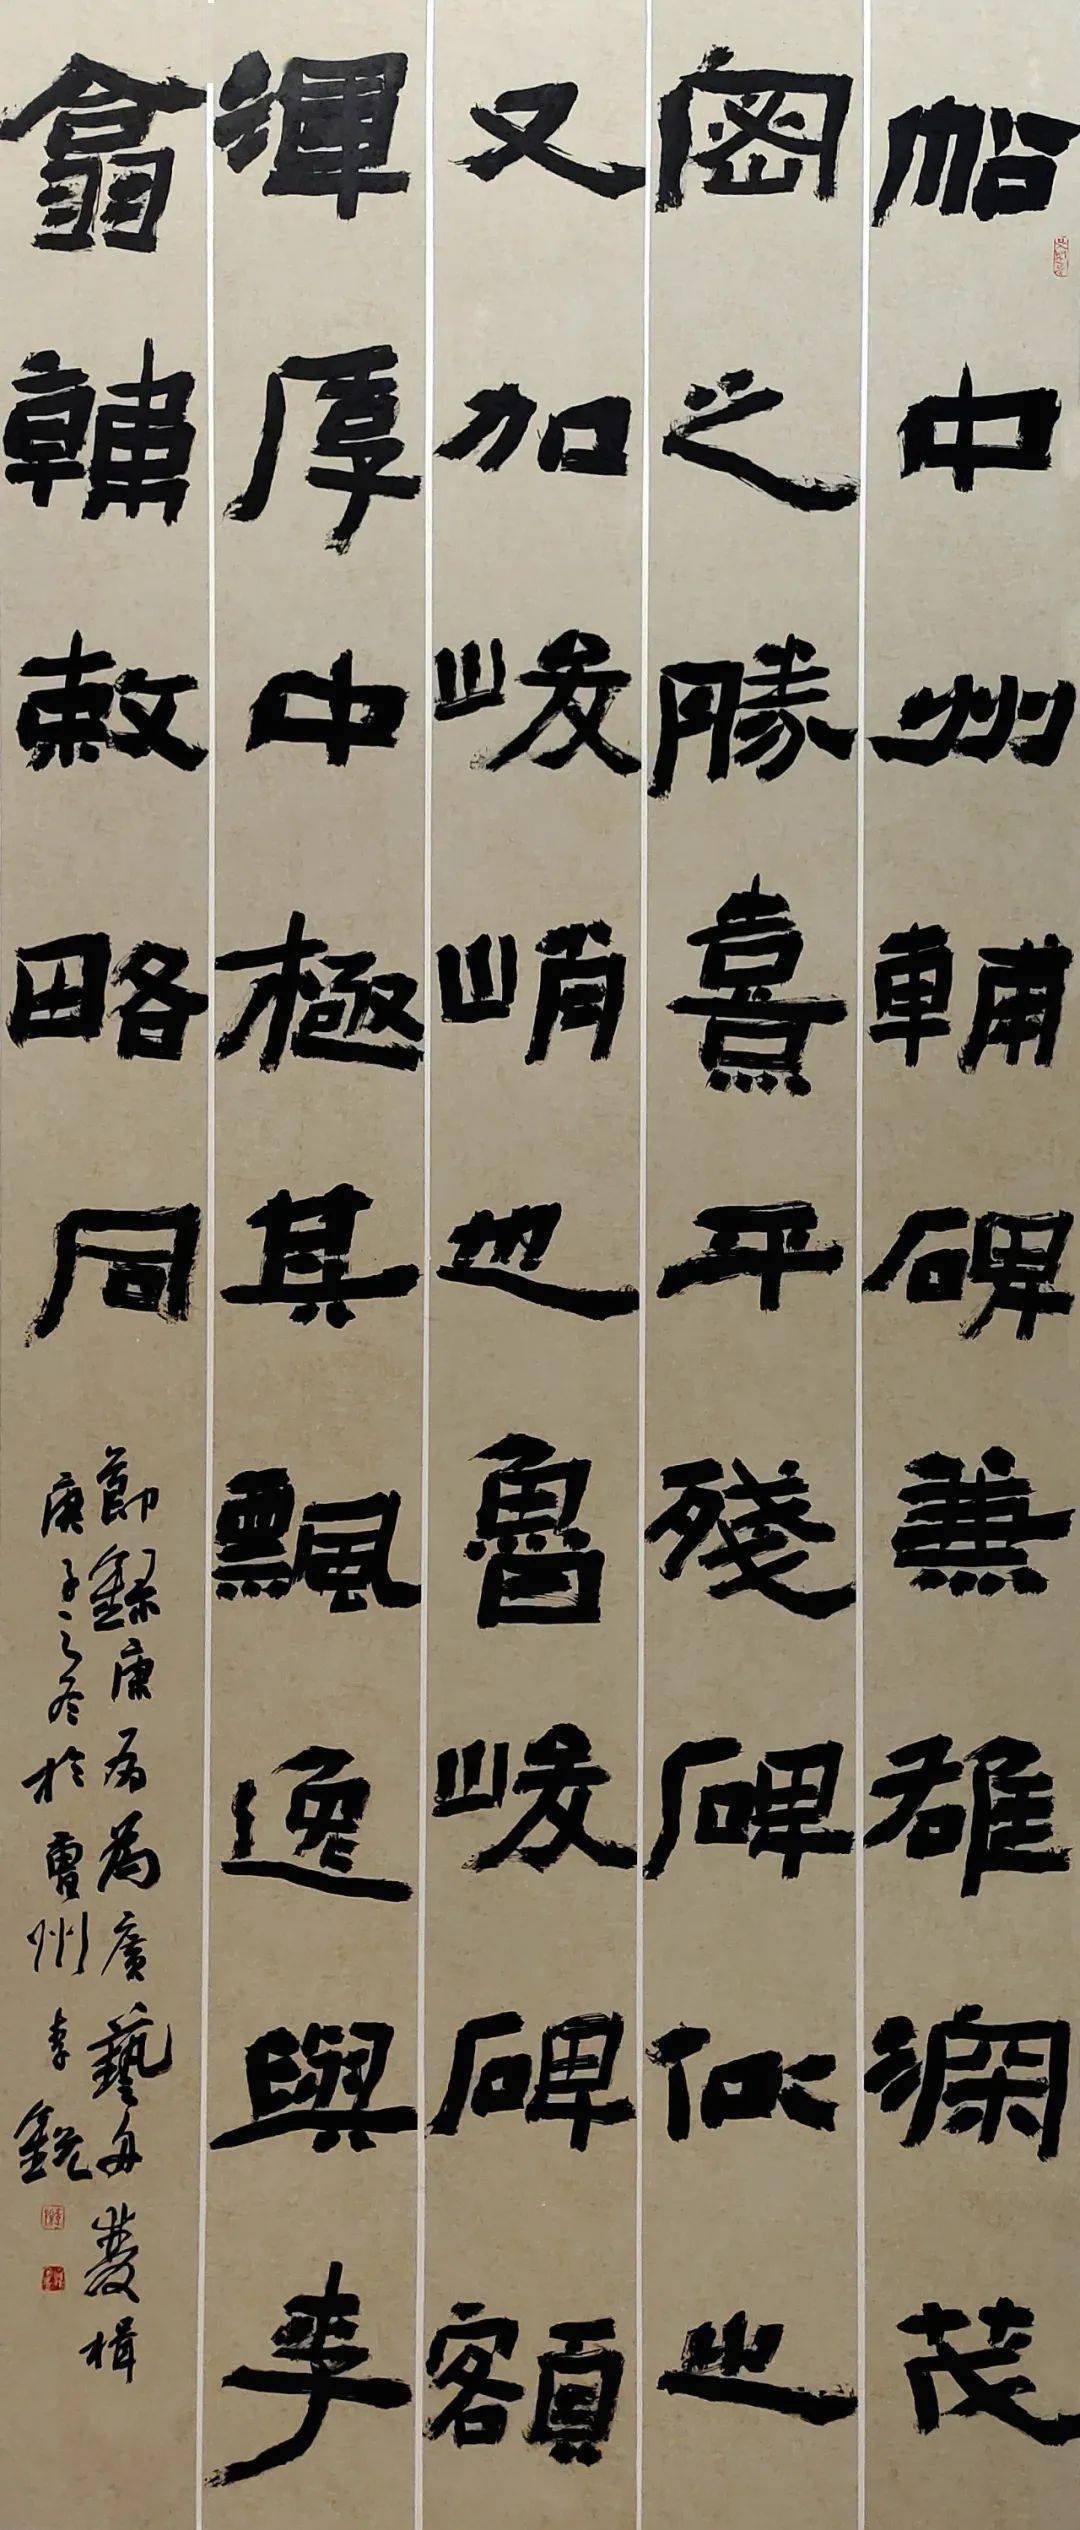 中州輔碑兼雄深茂
密之勝熹平殘碑似之
又加峻峭也魯峻碑額
渾厚中極其飄逸與李
翕韓敕略同
節錄康有為廣藝舟雙楫
庚子之冬於曹州李銳